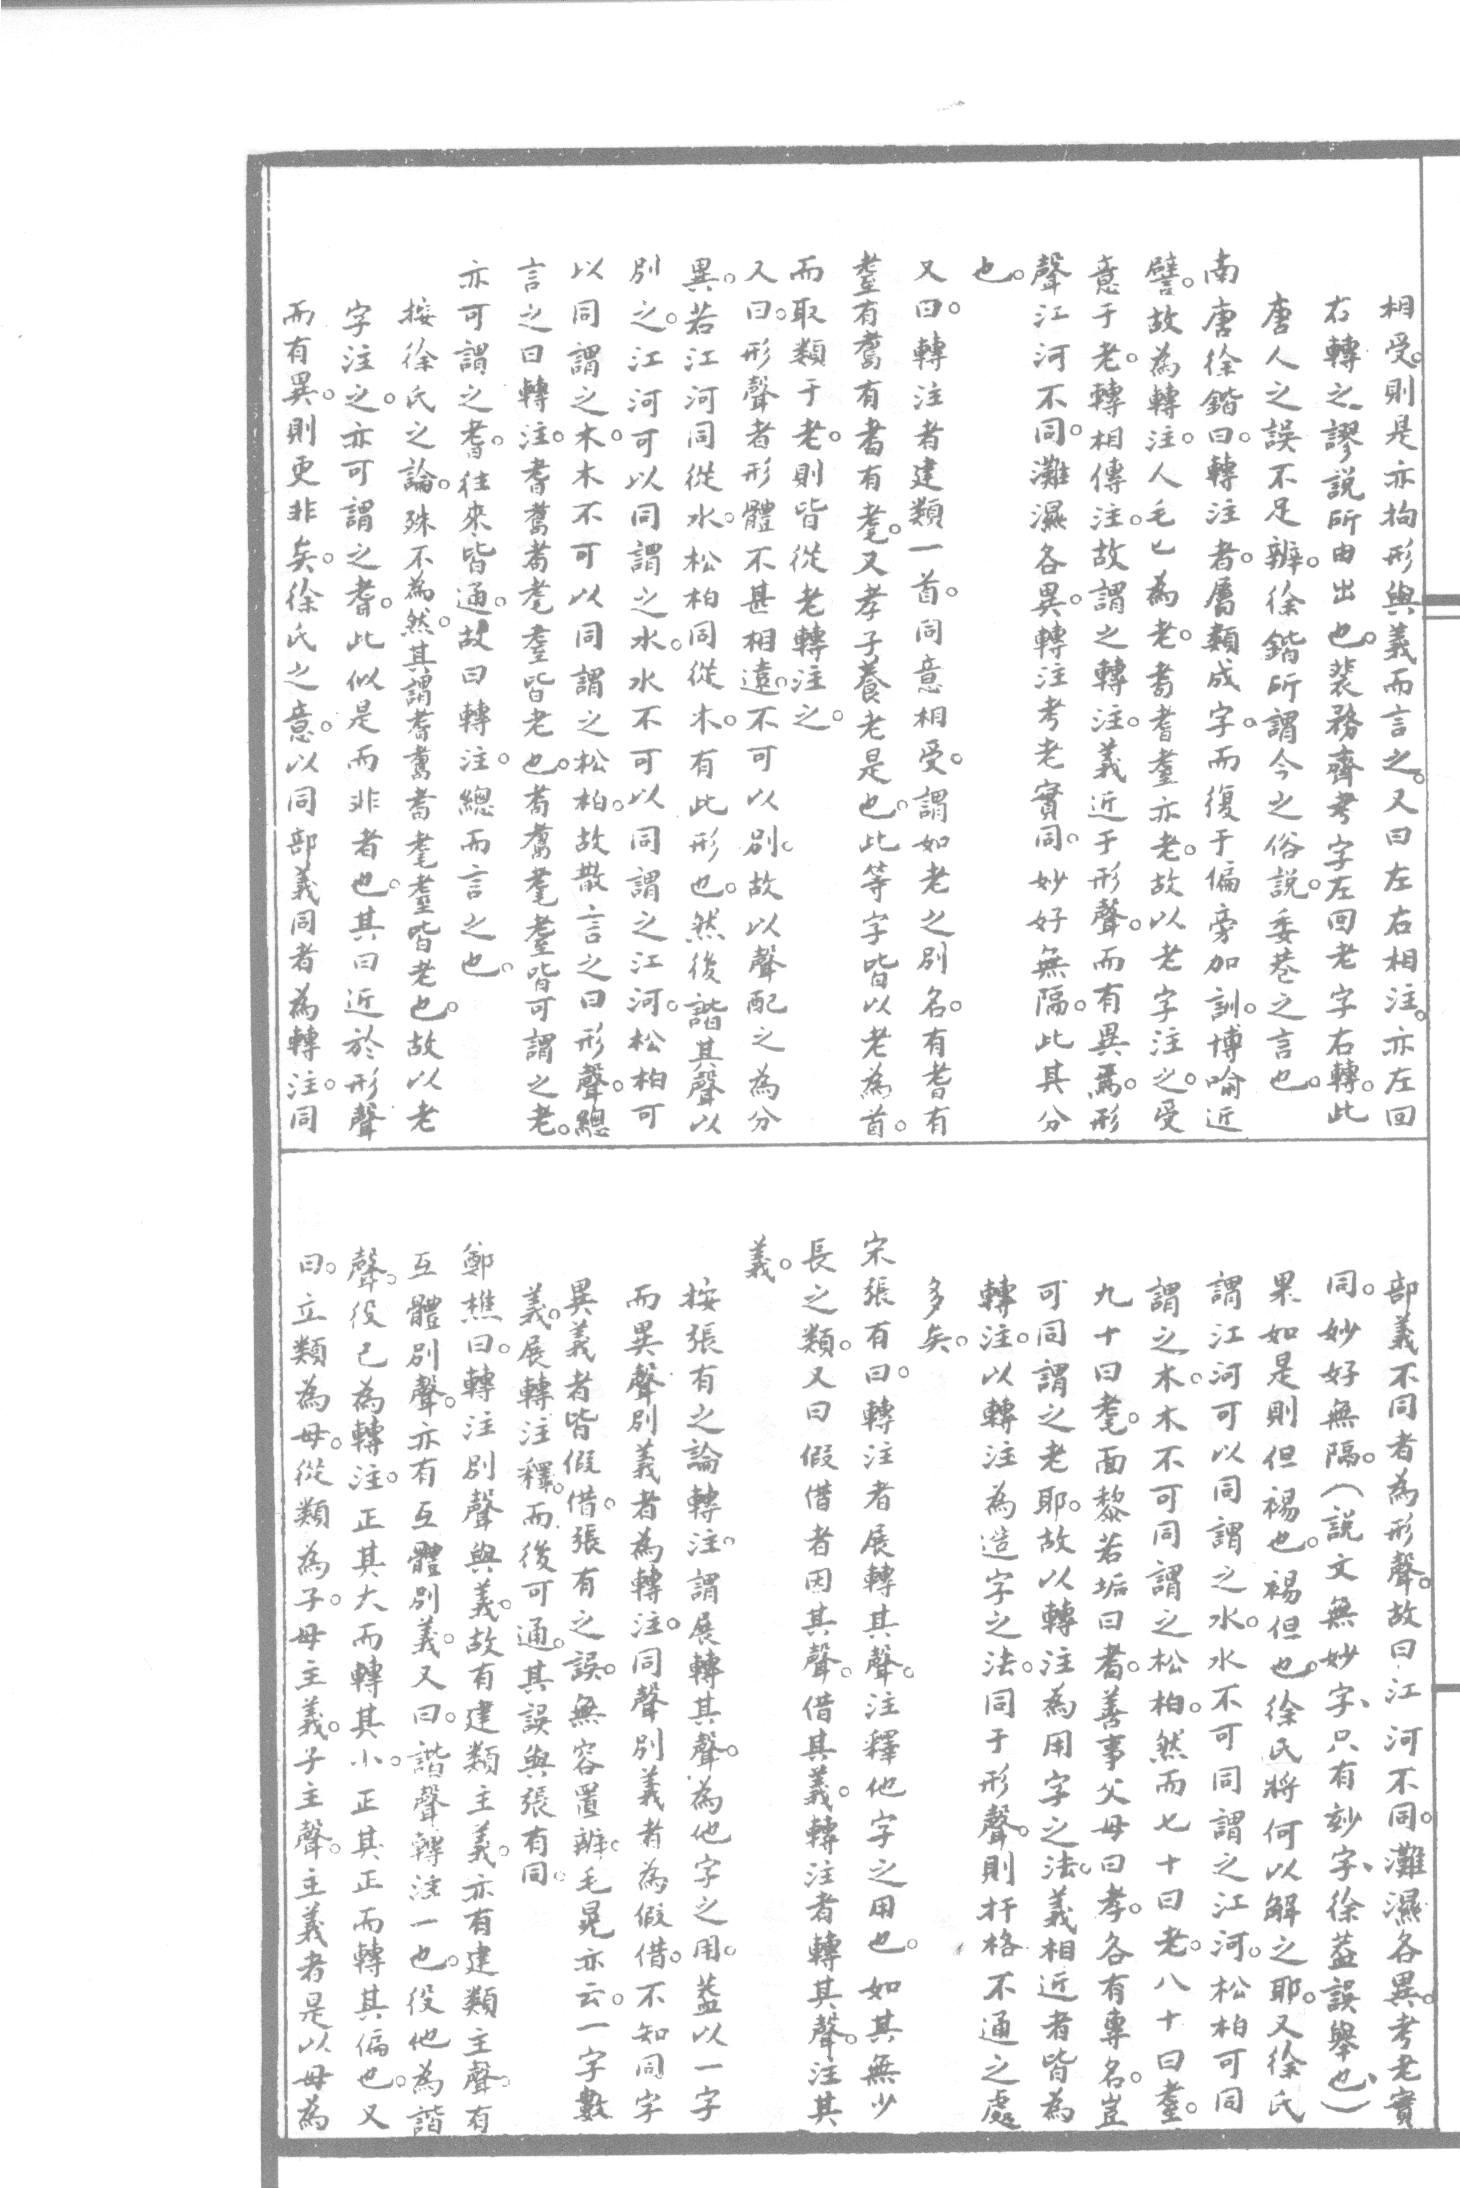 相受。則是亦拘形與義而言之。又曰左右相注。亦左回
右轉之謬說所由出也。裴務齊考字左回老字右轉。此
唐人之誤不足辨。徐鍇所謂今之俗說。委巷之言也。
南唐徐鍇曰。轉注者。屬類成字。而復于偏旁加訓。博喻近
譬。故為轉注。人毛匕為老。耆耋亦老。故以老字注之。受
意于老。轉相傳注。故謂之轉注。義近于形聲。而有異焉。形
聲江河不同。灘濕各異。轉注考老實同。妙好無隔。此其分
也。
又曰。轉注者建類一首。同意相受。謂如老之別名。有耆有
耋有耄。又孝子養老是也。此等字皆以老為首。
而取類于老。則皆從老轉注之。
又曰。形聲者形體不甚相遠。不可以別。故以聲配之為分
異。若江河同從水。松柏同從木。有此形也。然後諧其聲以
別之。江河可以同謂之水。水不可以同謂之江河。松柏可
以同謂之木。木不可以同謂之松柏。故散言之曰形聲。總
言之曰轉注。耆耄耋皆老也。耄耋皆可謂之老。
亦可謂之耆。往來皆通。故曰轉注。總而言之也。
按徐氏之論。殊不為然。其謂耆耄耋皆老也。故以老
字注之。亦可謂之耆。此似是而非者也。其曰近於形聲
而有異。則更非矣。徐氏之意。以同部義同者為轉注。同
部義不同者為形聲。故曰江河不同。灘濕各異。考老實
同。妙好無隔。（說文無妙字、只有玅字、徐蓋誤舉也、）
果如是則但裼也。裼但也。徐氏將何以解之耶。又徐氏
謂江河可以同謂之水。水不可同謂之江河。松柏可同
謂之木。木不可同謂之松柏。然而七十曰老。八十曰耋。
九十曰耄。面黎若垢曰耇。善事父母曰孝。各有專名。豈
可同謂之老耶。故以轉注為用字之法。義相近者皆為
轉注。以轉注為造字之法。同于形聲。則扞格不通之處
多矣。
宋張有曰。轉注者展轉其聲。注釋他字之用也。如其無少
長之類。又曰假借者因其聲。借其義。轉注者轉其聲。注其
義。
按張有之論轉注。謂展轉其聲。為他字之用。蓋以一字
而異聲別義者為轉注。同聲別義者為假借。不知同字
異義者皆假借。張有之誤。無容置辨。毛晃亦云。一字數
義。展轉注釋。而後可通。其誤與張有同。
鄭樵曰。轉注別聲與義。故有建類主義。亦有建類主聲。有
互體別聲。亦有互體別義。又曰。諧聲轉注一也。役他為諧
聲。役己為轉注。正其大而轉其小。正其正而轉其偏也。又
曰。立類為母。從類為子。母主義。子主聲。主義者是以母為